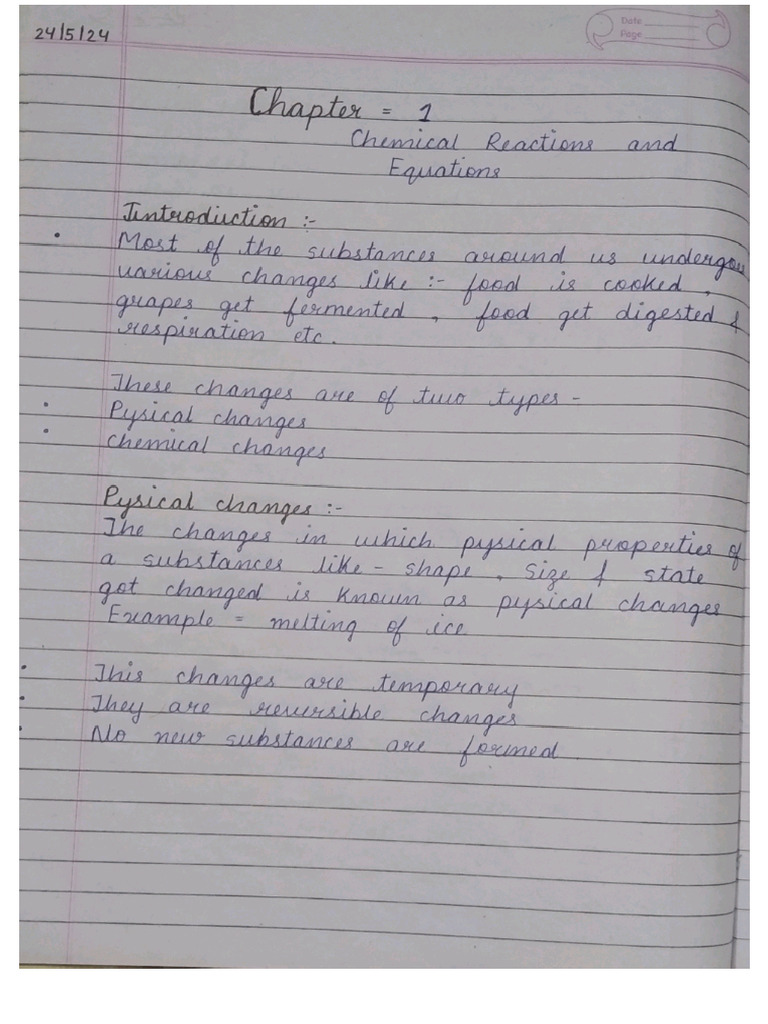 24/5/24
Date
Page
Chapter = 1
Chemical Reactions and
Equations
Introduction :-
• Most of the substances around us undergou
various changes like :- food is cooked ,
grapes get fermented , food get digested &
respiration etc.
These changes are of two types -
• Pysical changes
• Chemical changes
Pysical changes :-
The changes in which pysical properties of
a substances like - shape , size & state
got changed is known as pysical changes
Example = melting of ice
• This changes are temporary
• They are reversible changes
• No new substances are formed.